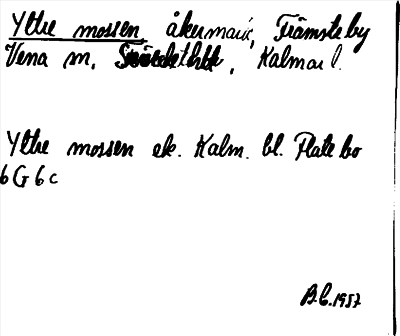 Yttre mossen, åkermark, Främsteby
Vena sn, Kalmar l.
Yttre mossen ek. Kalm. bl. Platebo
6G 6c
B.C. 1957